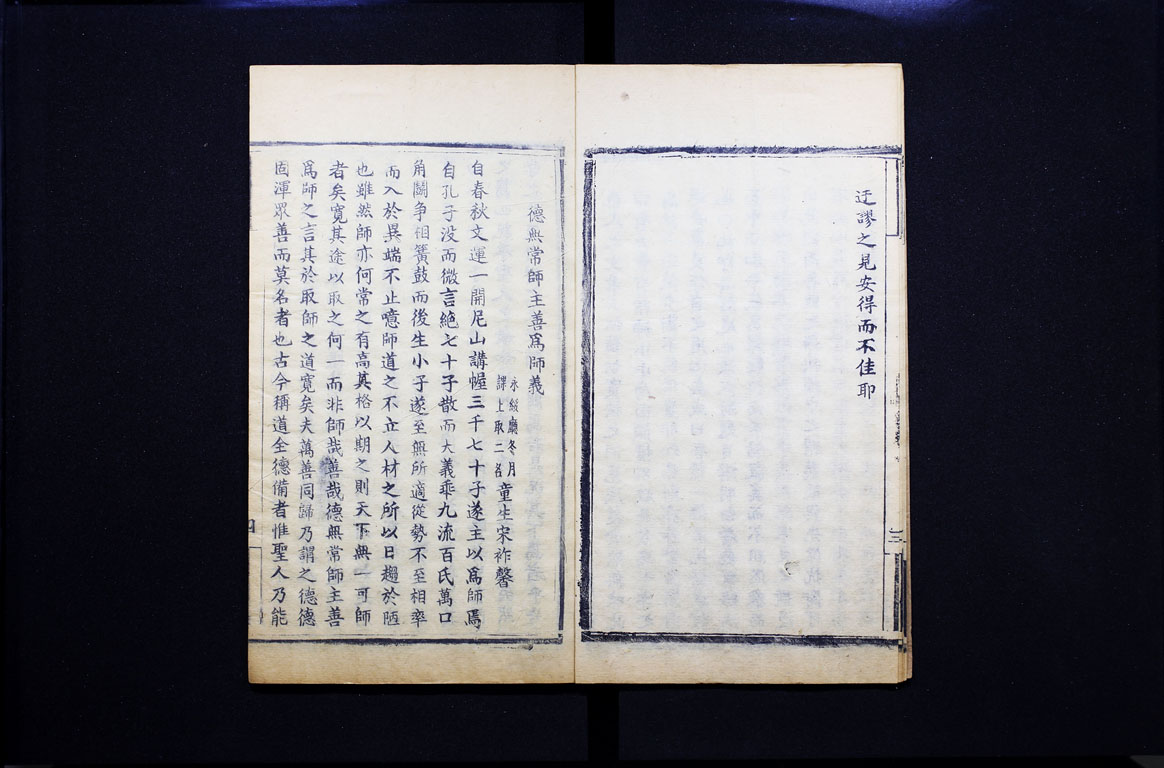 迂謬之見安得而不佳耶
三
德無常師主善爲師義
永綏廳冬月
課上取二名
童生宋祚馨
自春秋文運一開尼山講幄三千七十子遂主以爲師焉
自孔子没而微言絶七十子散而大義乖九流百氏萬口
角鬬争相簧鼓而後生小子遂至無所適從勢不至相率
而入於異端不止噫師道之不立人材之所以日趨於陋
也雖然師亦何常之有高其格以期之則天下無一可師
者矣寛其途以取之何一而非師哉善哉德無常師主善
爲師之言其於取師之道寛矣夫萬善同歸乃謂之德德
固渾眾善而莫名者也古今稱道全德備者惟聖人乃能
四